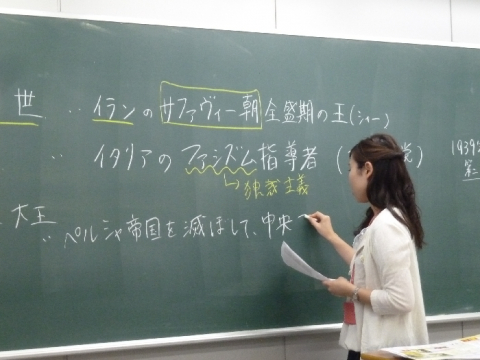 世 ‥ イランの サファヴィー朝 全盛期の王(シャー)
‥ イタリアの ファシズム指導者 ( 党)
↳ 独裁主義
1939年
第二
大王
‥ ペルシャ帝国を滅ぼして、中央